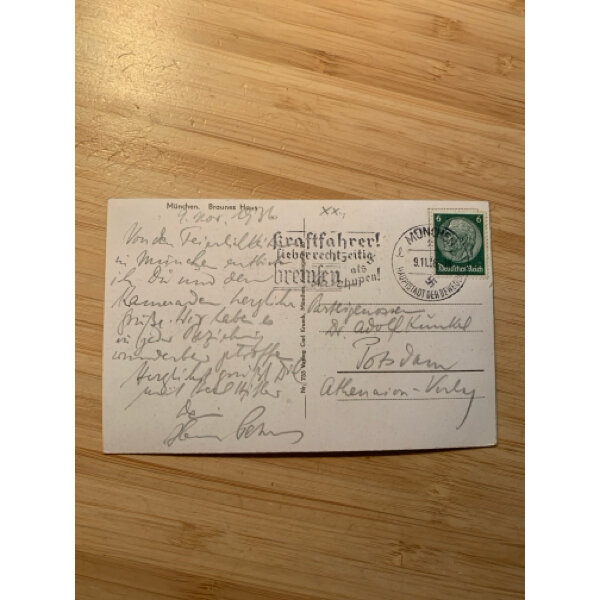 München. Braunes Haus
9. Nov. 1936
Von den Feierlichkeiten
in München
ich Dir und den
Kameraden herzliche
Grüße. Wir haben es
in jeder Beziehung
wunderbar getroffen
Herzlichst grüßt Dich
mit Heil Hitler
Dein
Kraftfahrer!
lieber rechtzeitig
bremsen als
hupen!
MÜNCHEN
9.11.36
HAUPTSTADT DER BEWEGUNG
6 6
Deutsches Reich
Parteigenossen
Dr. Adolf Kunkel
Potsdam
Athenaion-Verlag